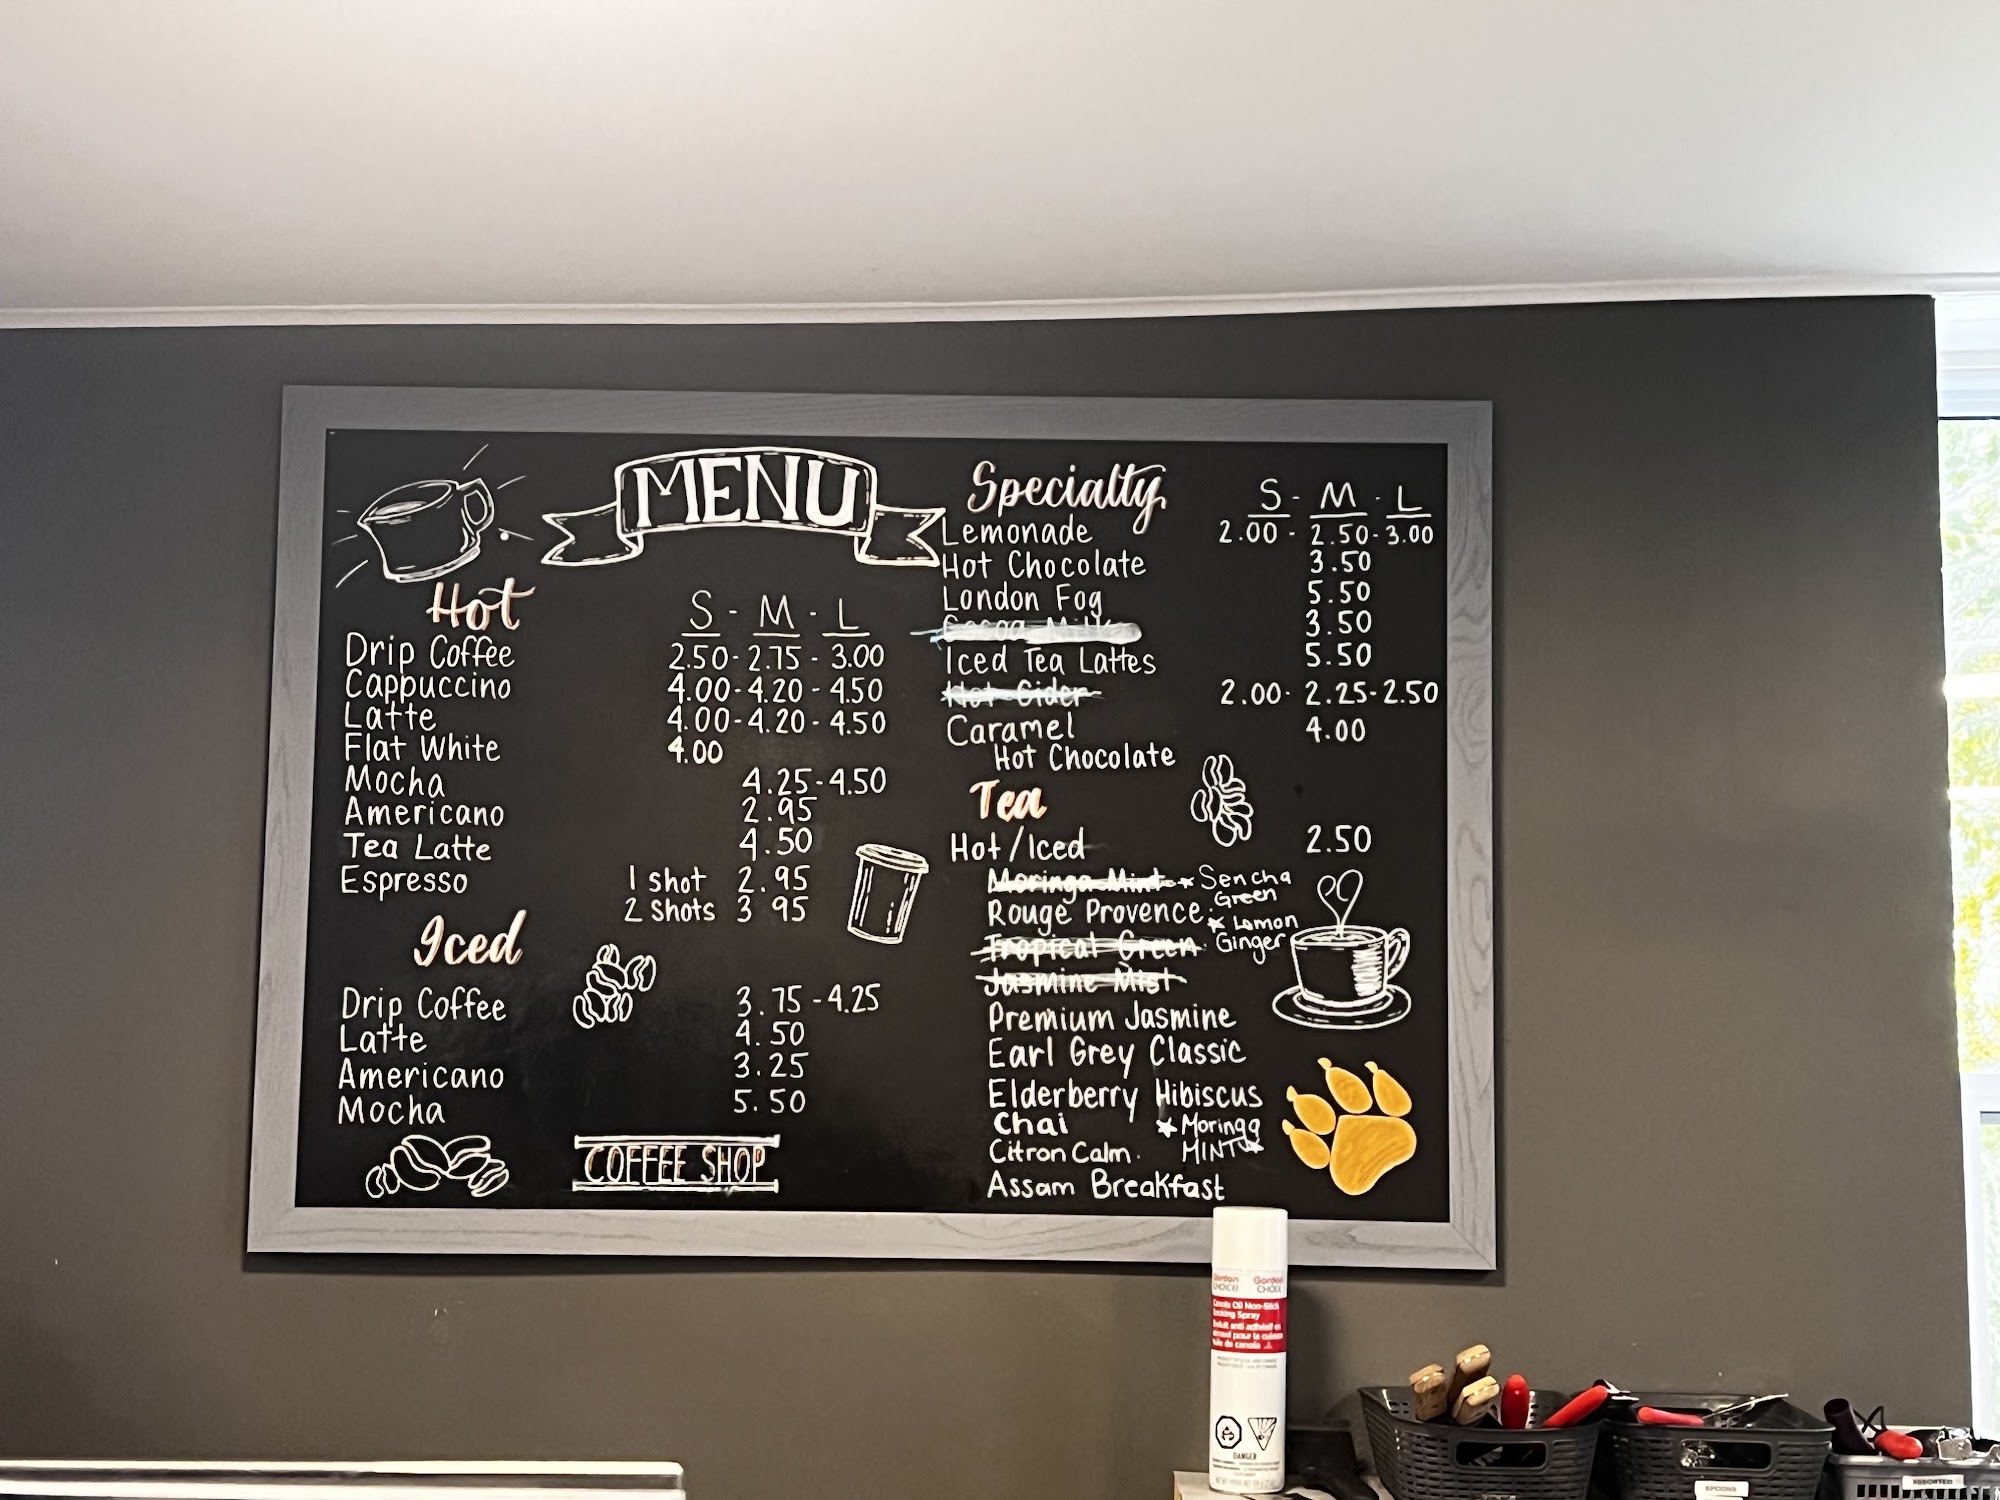 MENU
Hot
S - M - L
Drip Coffee 2.50 - 2.75 - 3.00
Cappuccino 4.00 - 4.20 - 4.50
Latte 4.00 - 4.20 - 4.50
Flat White 4.00
Mocha 4.25 - 4.50
Americano 2.95
Tea Latte 4.50
Espresso 1 shot 2.95
2 shots 3 95
Iced
Drip Coffee 3.75 - 4.25
Latte 4.50
Americano 3.25
Mocha 5.50
COFFEE SHOP
Specialty
S - M - L
Lemonade 2.00 - 2.50 - 3.00
Hot Chocolate 3.50
London Fog 5.50
Cocoa Milk 3.50
Iced Tea Lattes 5.50
Hot Cider 2.00 - 2.25 - 2.50
Caramel 4.00
Hot Chocolate
Tea
Hot/Iced 2.50
Moringa Mint
Sencha
Green
Rouge Provence
Lemon
Ginger
Tropical Green
Jasmine Mist
Premium Jasmine
Earl Grey Classic
Elderberry Hibiscus
Chai
Moringa
MINT
Citron Calm.
Assam Breakfast
Gordon Gordon
CHOICE CHOICE
Canola Oil Non-Stick
Cooking Spray
DANGER